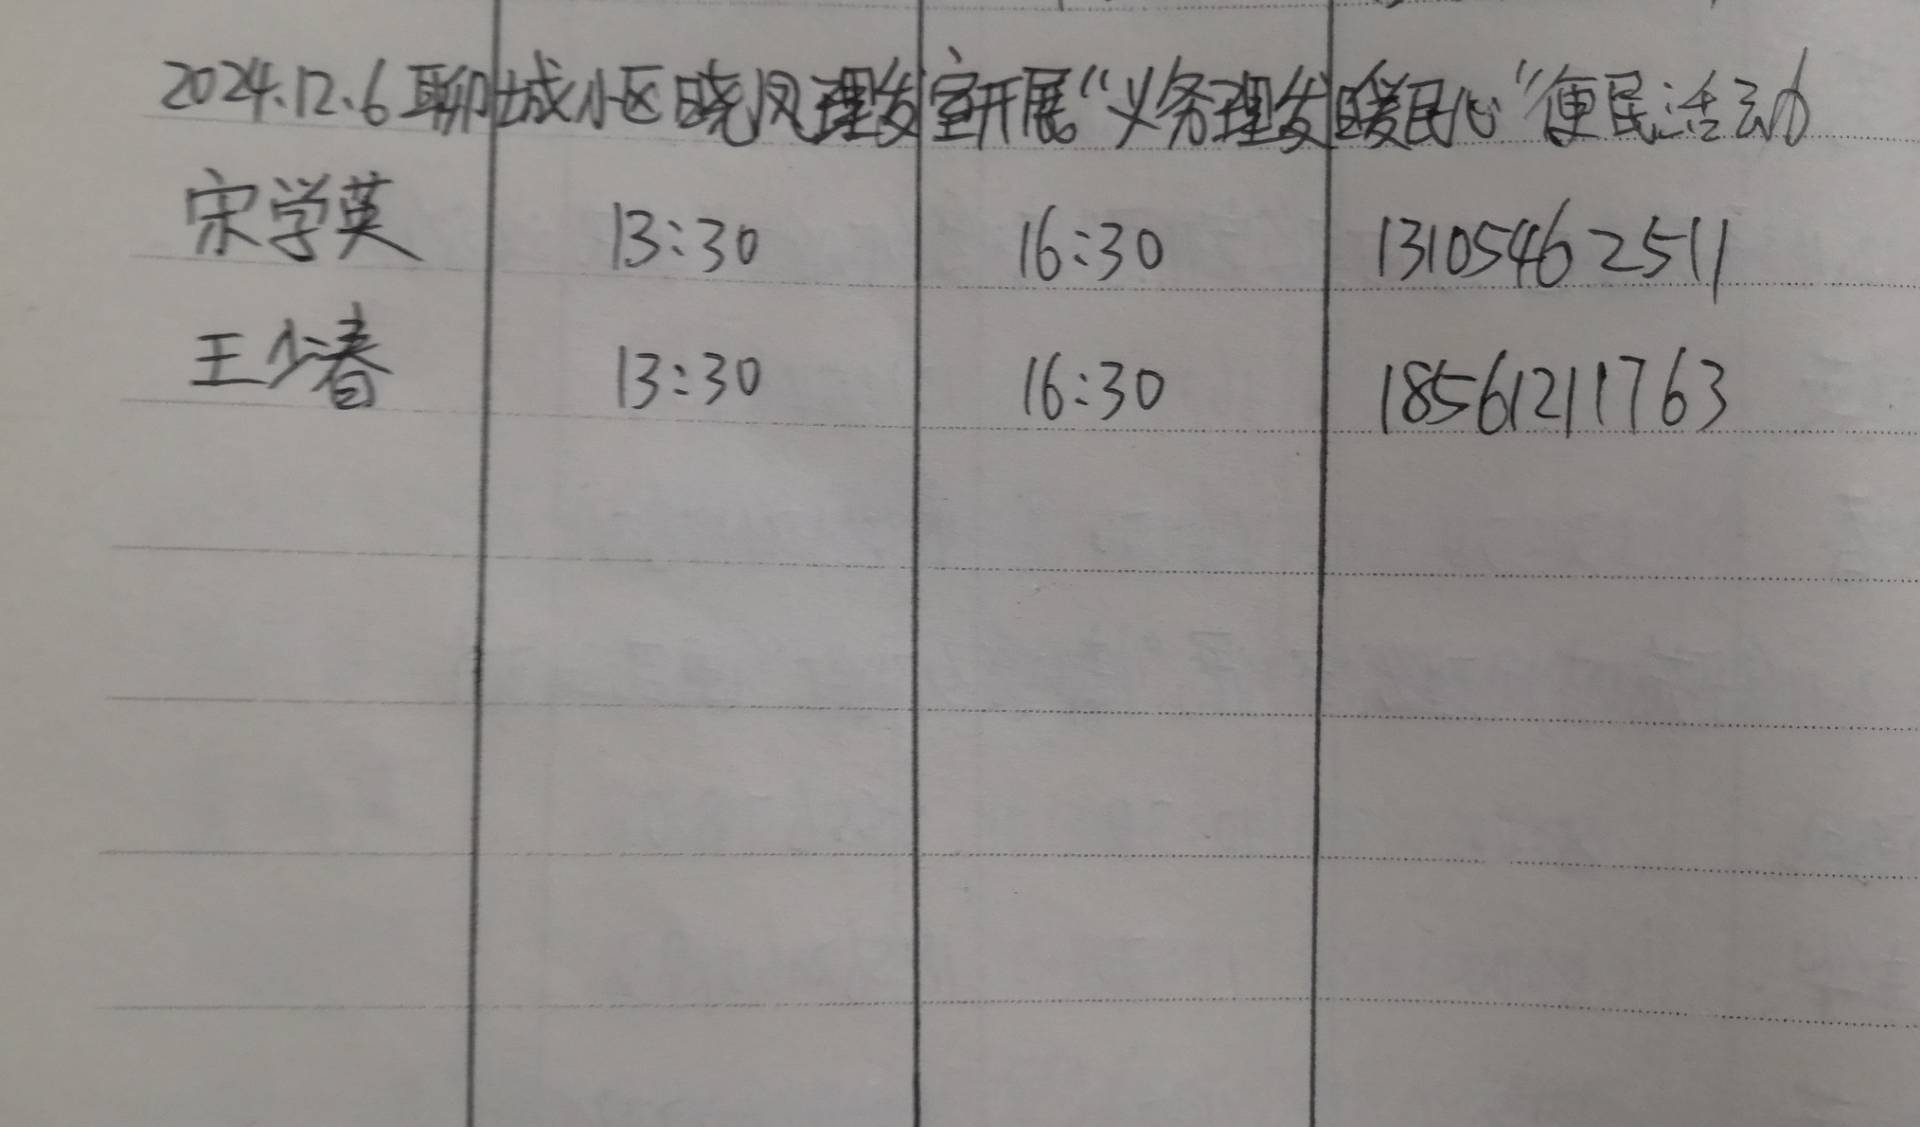 2024.12.6聊城小区晓凤理发室开展“义务理发暖民心”便民活动
宋学英 13:30 16:30 13105462511
王少春 13:30 16:30 18561211763